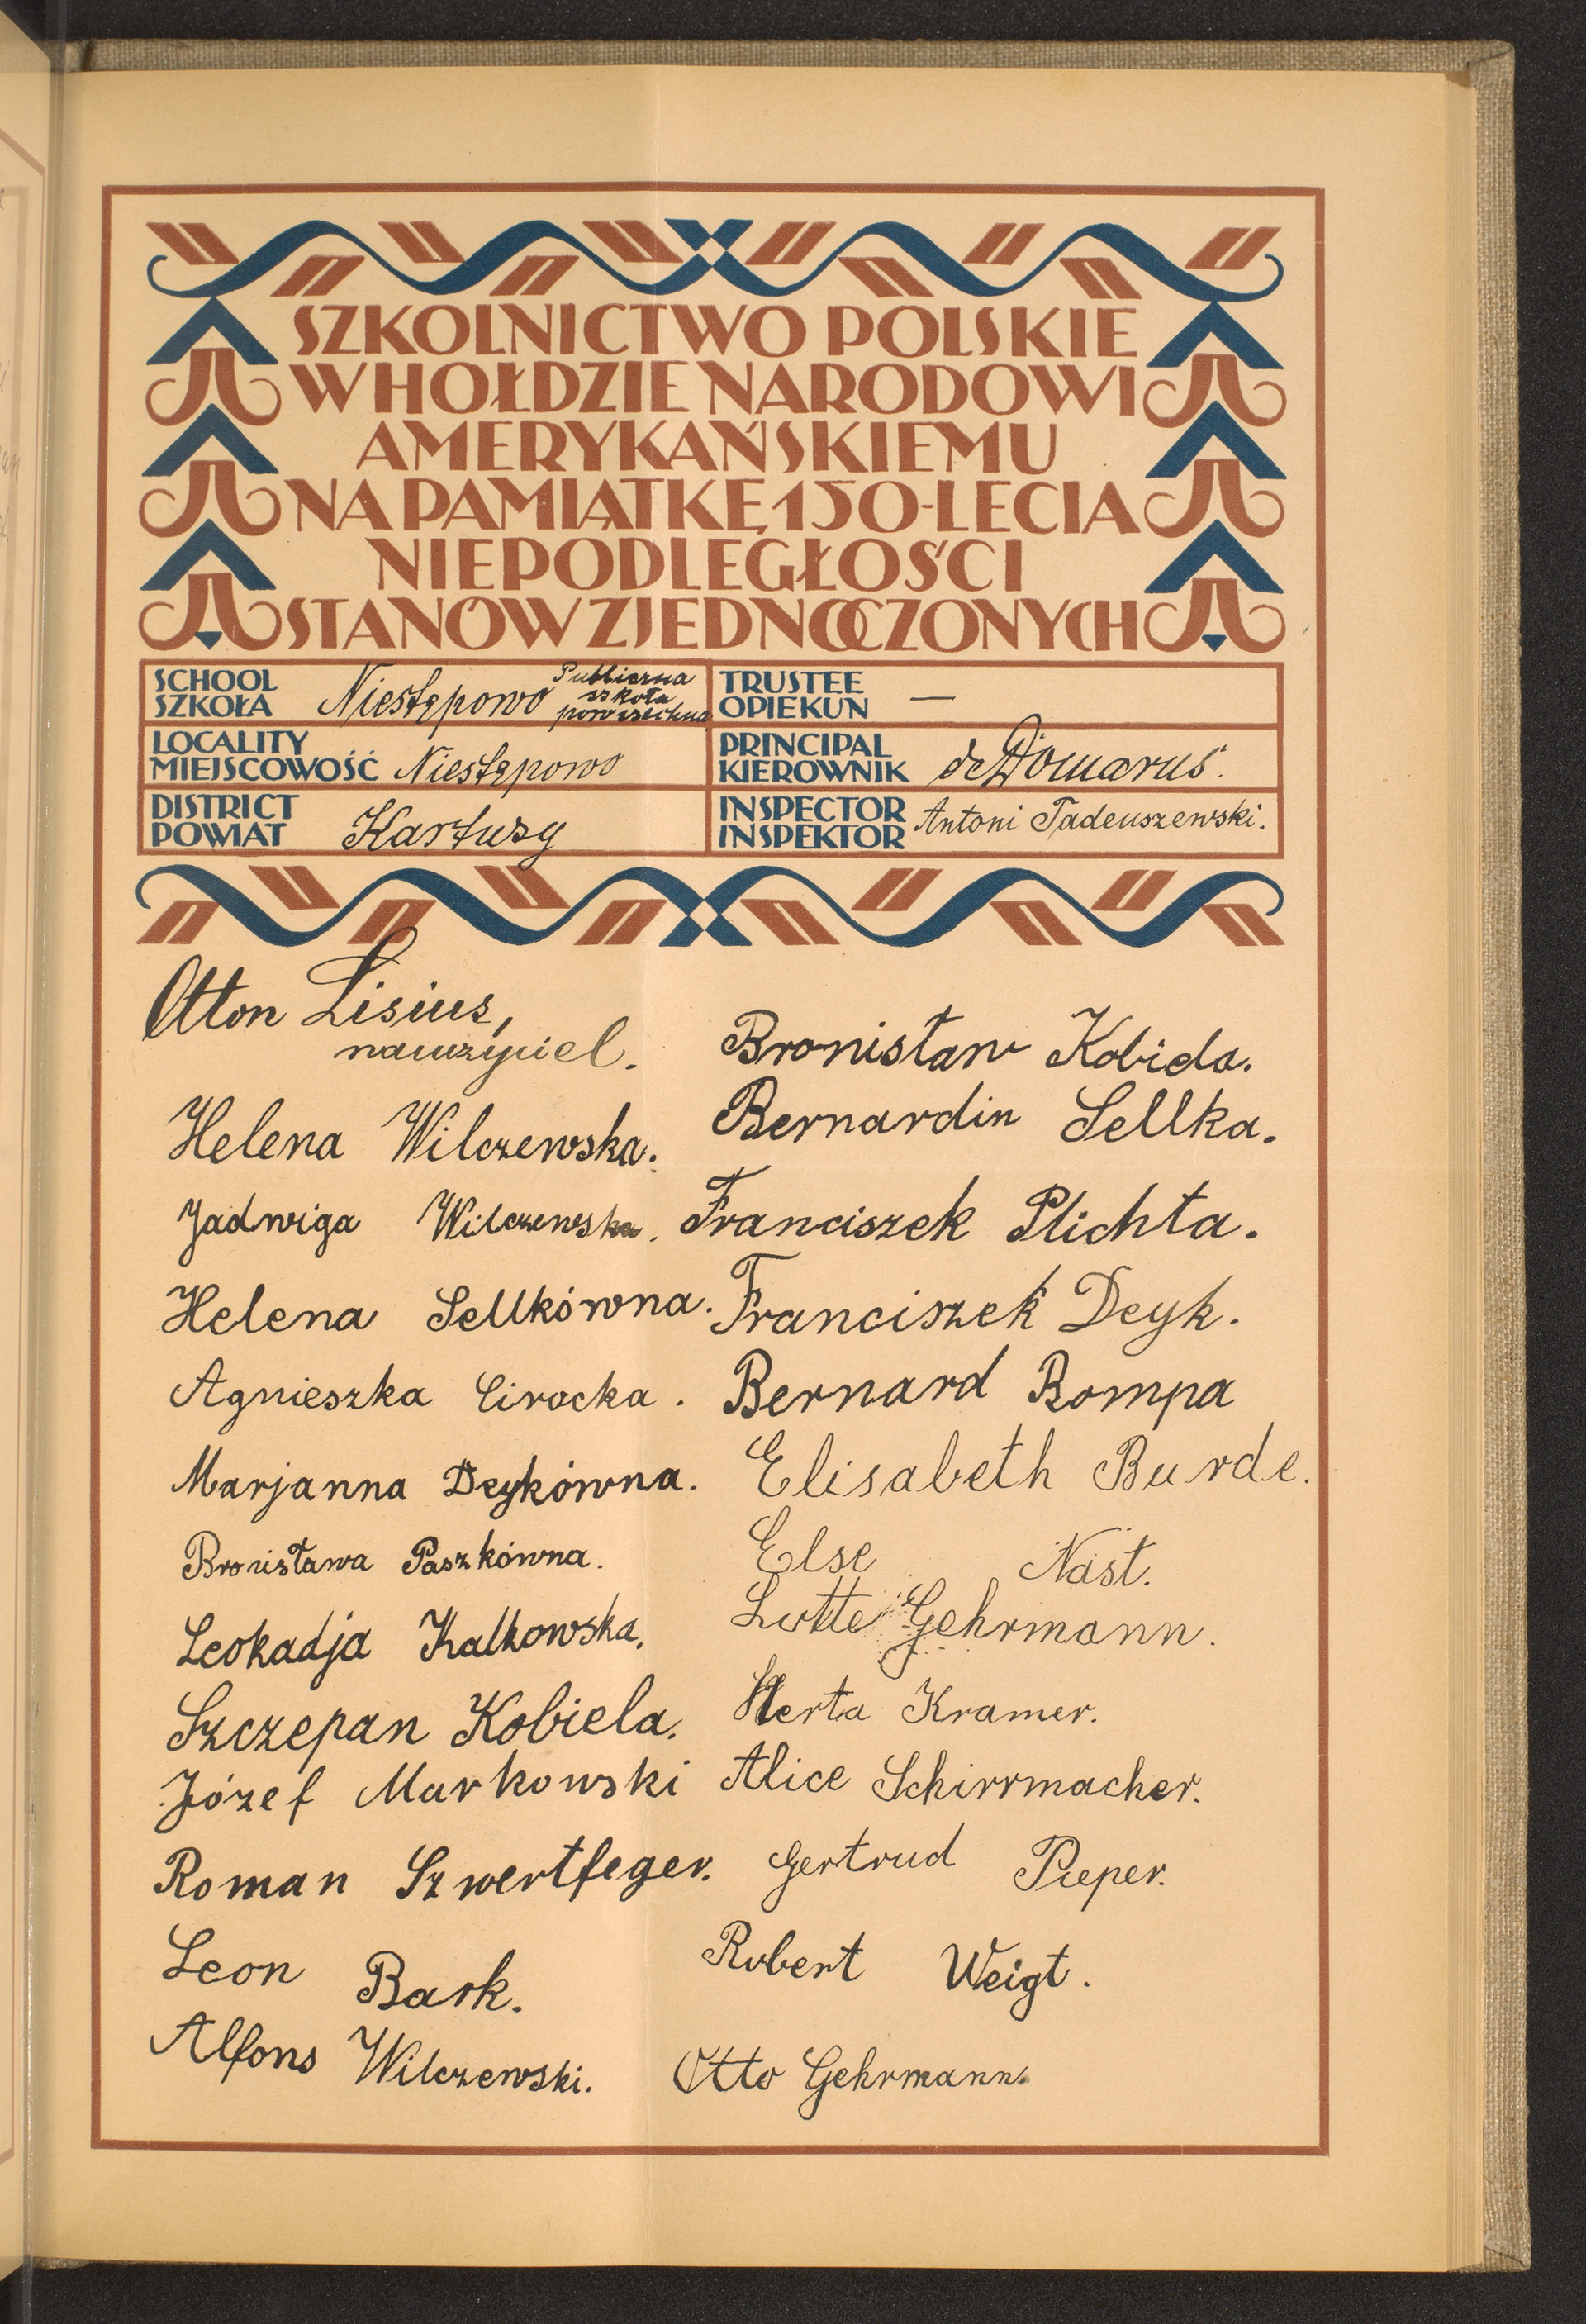 SZKOLNICTWO POLSKIE
W HOŁDZIE NARODOWI
AMERYKAŃSKIEMU
NA PAMIĄTKĘ 150-LECIA
NIEPODLEGŁOŚCI
STANÓW ZJEDNOCZONYCH
SCHOOL
SZKOŁA
Niestępowo Publiczna szkoła powszechna
TRUSTEE
OPIEKUN
—
LOCALITY
MIEJSCOWOŚĆ
Niestępowo
PRINCIPAL
KIEROWNIK
de Domarus.
DISTRICT
POWIAT
Kartuzy
INSPECTOR
INSPEKTOR
Antoni Tadeuszewski.
Otton Lisius,
nauczyciel.
Helena Wilczewska.
Jadwiga Wilczewska.
Helena Sellkówna.
Agnieszka Cirocka.
Marjanna Deykówna.
Bronisława Paszkówna.
Leokadja Kalkowska.
Szczepan Kobiela.
Józef Markowski
Roman Szwertfeger.
Leon Bark.
Alfons Wilczewski.
Bronisław Kobiela.
Bernardin Sellka.
Franciszek Plichta.
Franciszek Deyk.
Bernard Rompa
Elisabeth Burde.
Else Nast.
Lotte Gehrmann.
Herta Kramer.
Alice Schirrmacher.
Gertrud Pieper.
Robert Weigt.
Otto Gehrmann.